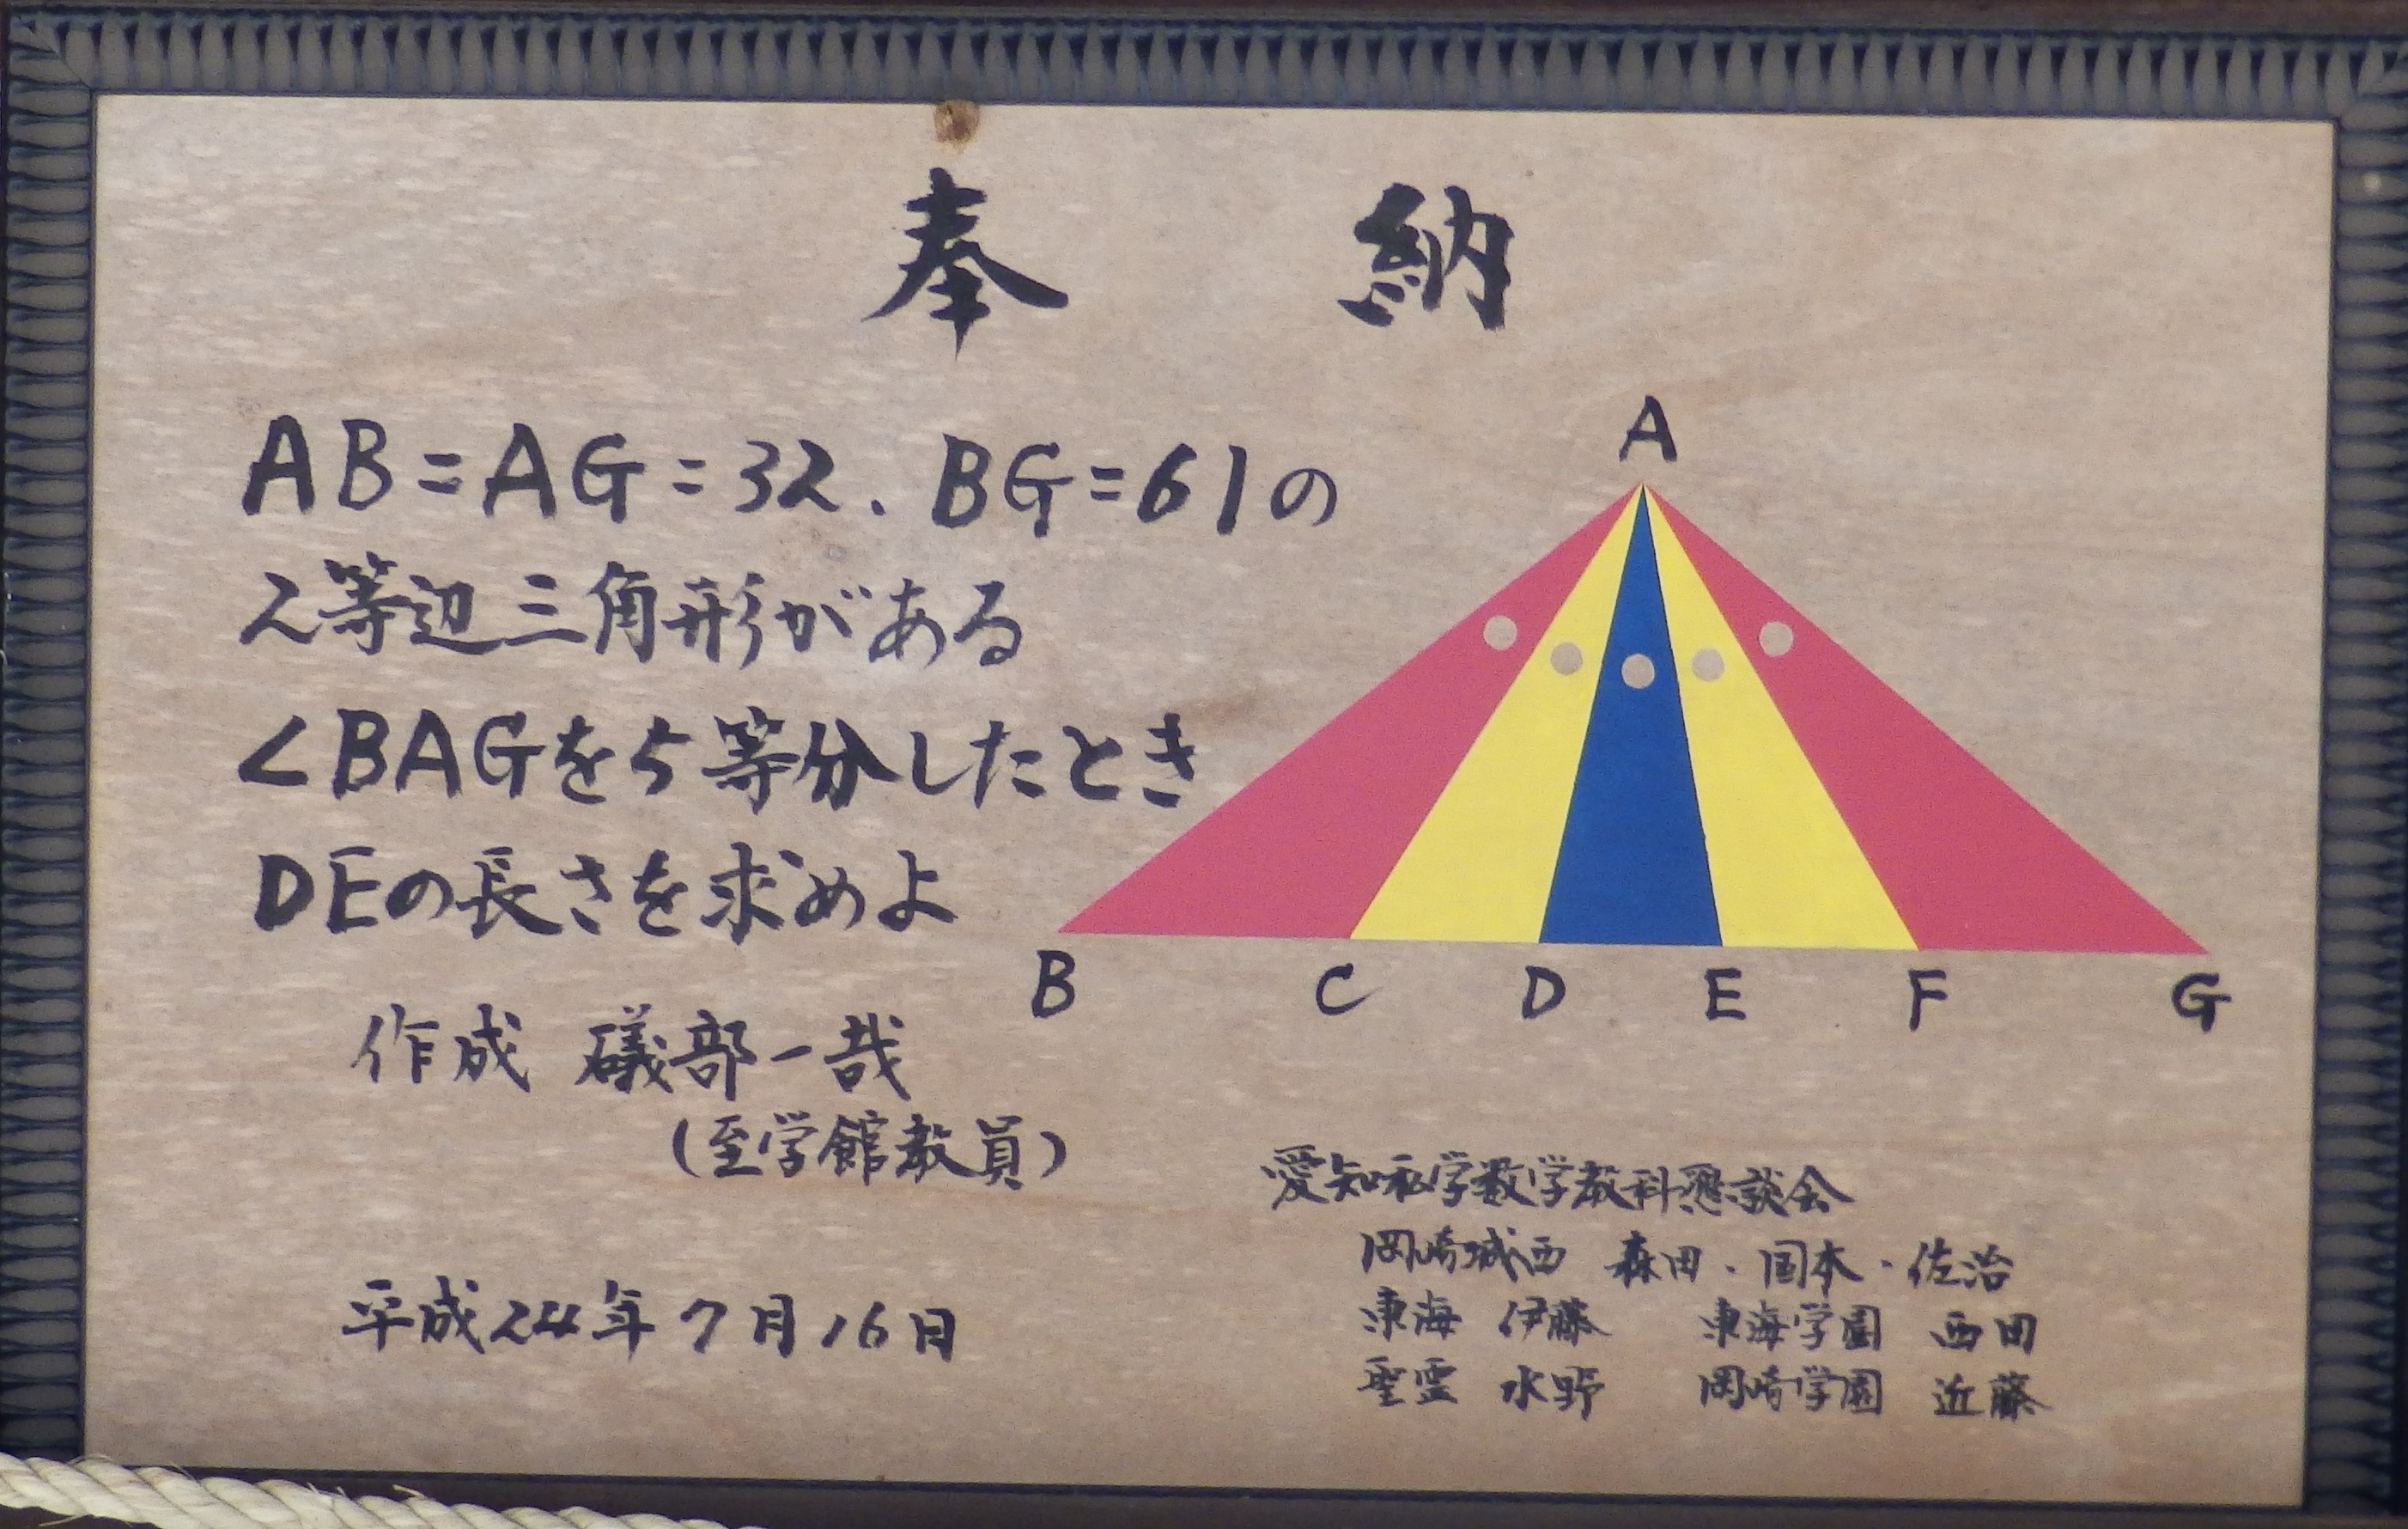 奉納
AB=AG=32. BG=61の
2等辺三角形がある
∠BAGを5等分したとき
DEの長さを求めよ
A
B C D E F G
作成 礒部一哉
(至学館教員)
平成24年7月16日
愛知私学数学教科懇談会
岡崎城西 森田・国本・佐治
東海 伊藤 東海学園 西田
聖霊 水野 岡崎学園 近藤